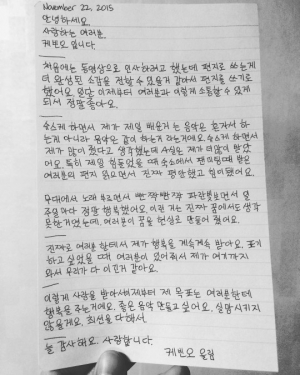 November 22, 2015
안녕하세요.
사랑하는 여러분.
케빈오 입니다.
처음에는 동영상으로 인사하려고 했는데 편지로 쓰는게
더 완성된 소감을 전할 수 있을거 같아서 편지를 쓰기로
했어요. 일단 이제부터 여러분과 이렇게 소통할 수 있게
되서 정말 좋아요.
슈스케 하면서 제가 제일 배운거는 음악은 혼자서 하
는게 아니라 음악은 같이 하는거 라는거에요. 슈스케 하면서
제가 많이 줬다고 생각했는데 사실은 제가 더 많이 받았
어요. 특히 제일 힘들었을 때 숙소에서 팬미팅때 받은
여러분의 편지 읽으면서 진짜 평안했고 힘이 됐어요.
무대에서 노래 부르면서 빤짝빤짝 파란불 보면서 일
주일마다 정말 행복했어요. 이런 거는 진짜 꿈에서도 생각
못한거었는데. 여러분이 꿈을 현실로 만들어 줬어요.
진짜로 여러분한테서 제가 행복을 계속계속 받아요. 포기
하고 싶었을 때 여러분이 있어줘서 제가 여기까지
와서 우리가 다 이긴거 같아요.
이렇게 사랑을 받아서 이제부터 제 목표는 여러분한테
행복을 주는거에요. 좋은 음악 만들고 싶어요. 실망시키지
않을게요. 최선을 다해서.
늘 감사해요. 사랑합니다.
케빈오 올림